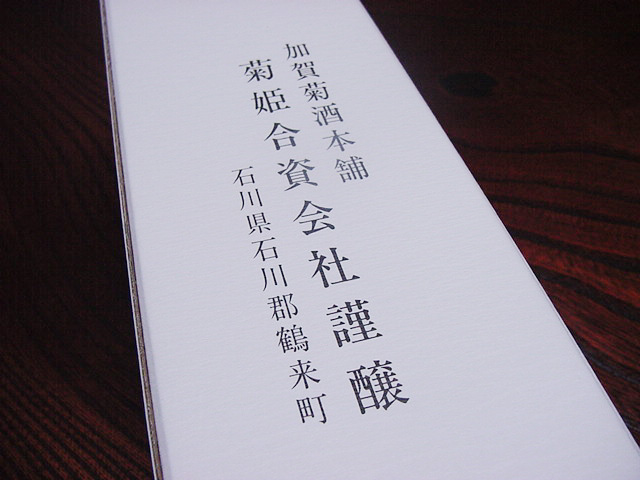 加賀菊酒本舗
菊姫合資会社謹醸
石川県石川郡鶴来町